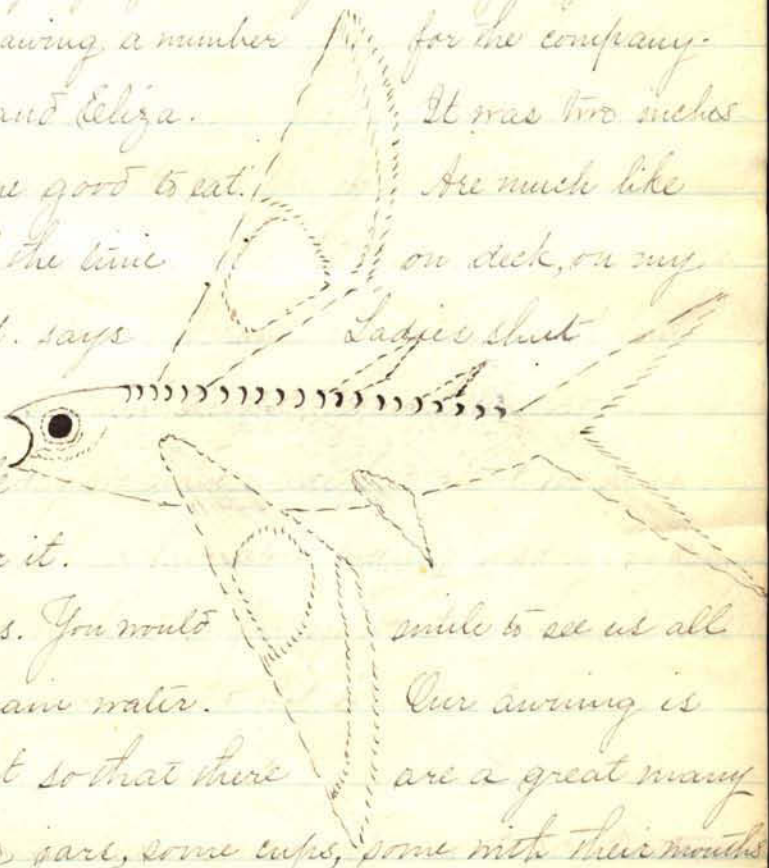 awing a number for the company.
and Eeliza. It was two inches
e good to eat. Are much like
the time on deck, on my
. says Ladies shut
r it.
s. You would smile to see us all
ain water. Our awning is
t so that there are a great many
jars, some cups, some with their mouths